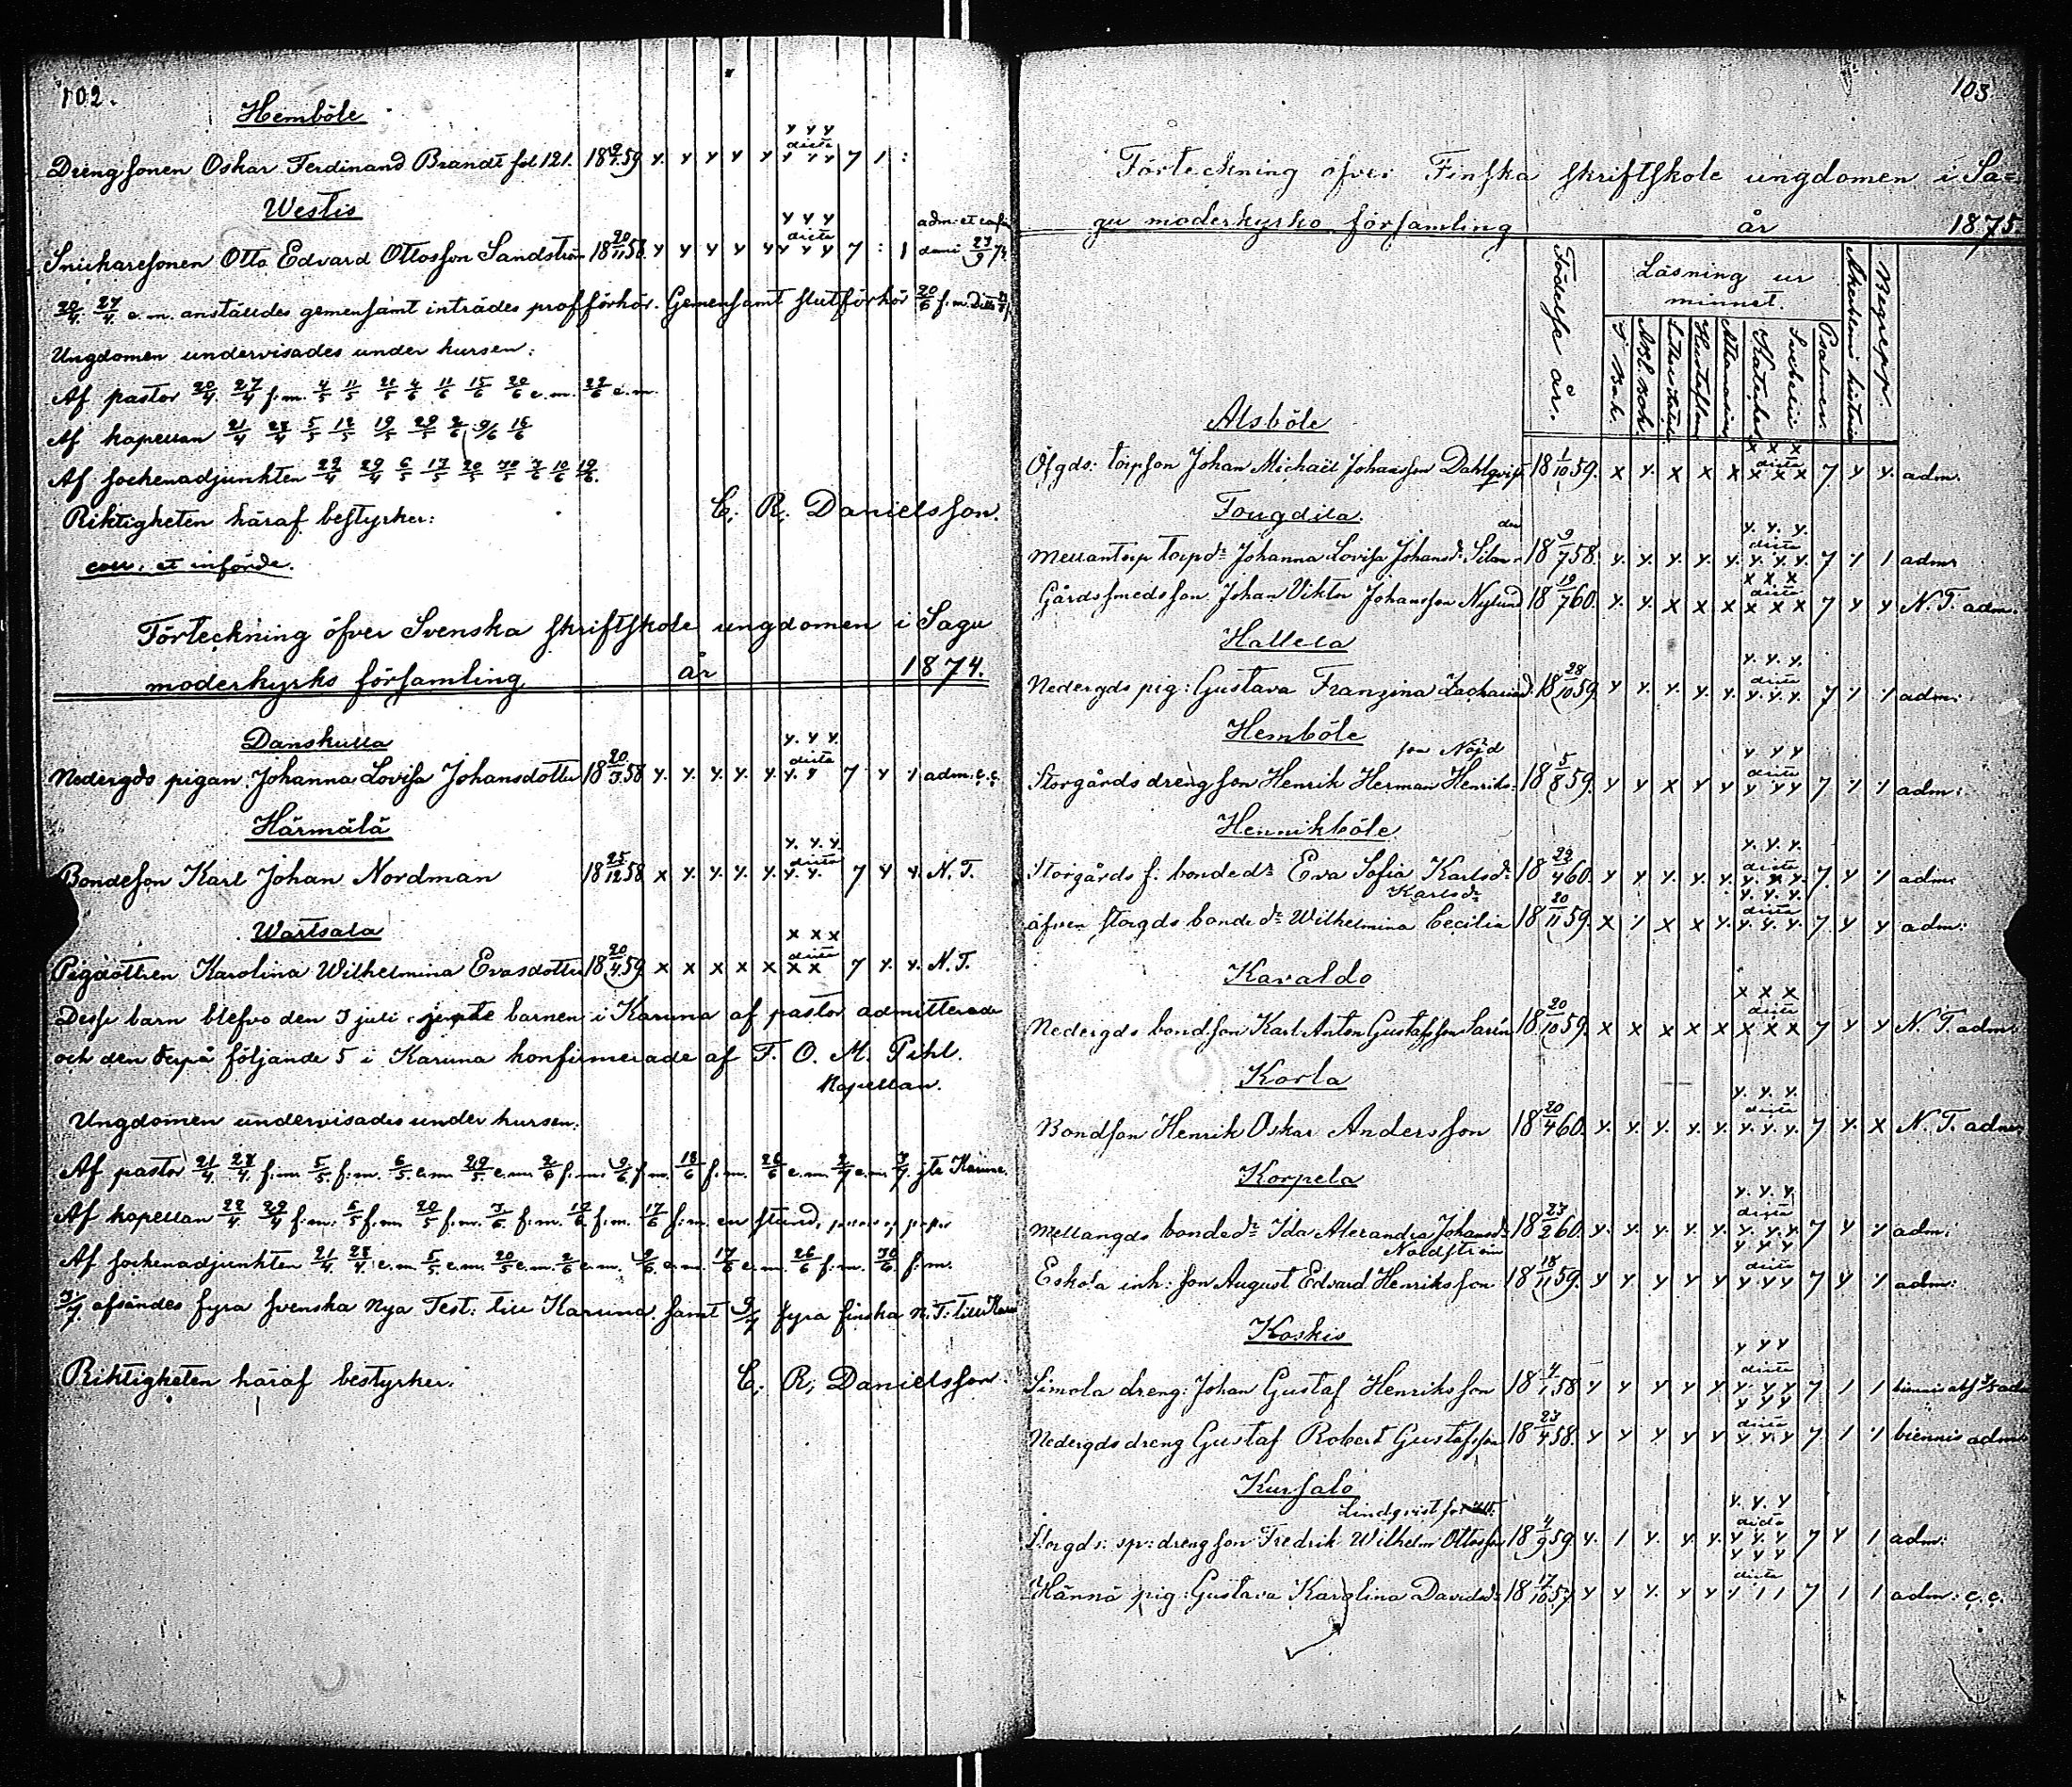 102.
Hemböle
Drengsonen Oskar Ferdinand Brandt fol 121. 18 9/7 59 y. y y y y y y y dicta y y y 7 1 :
Westis
Snickaresonen Otto Edvard Ottosson Sandström 18 20/11 58 y y y y y y y y dicta y y y 7 : 1
20/4. 27/4. e.m. anställdes gemensamt inträdes profförhör. Gemensamt slutförhör 20/6 f.m.
Ungdomen undervisades under kursen:
Af pastor 20/4. 27/4 f.m. 4/5 11/5
Af kapellan 21/4 28/4 5/5 12/5 19/5
Af sockenadjunkten 22/4 29/4 6/5
Riktigheten häraf bestyrker: C. R. Danielsson.
coll. et införde.
Förteckning öfver Svenska skriftskole ungdomen i Sagu
moderkyrko församling år 1874.
Danskulla
Nedergds pigan Johanna Lovisa Johansdotter 18 20/3 58 y. y. y. y. y. y. y y. dicta y. y 7 y 1 adm: c.c.
Härmälä
Bondeson Karl Johan Nordman 18 25/12 58 x y. y. y. y. y. y. y. dicta y. y. 7 y y. N. T.
Wartsala
Pigdottren Karolina Wilhelmina Evasdotter 18 20/4 59 x x x x x x x x dicta x x 7 y. y. N. T.
Desse barn blefvo den 3 juli jemte barnen i Karuna af pastor admitterade
och den derpå följande 5 i Karuna konfirmerade af F. O. M. Pihl.
Kapellan.
Ungdomen undervisades under kursen.
Af pastor 21/4. 28/4. f.m. 5/5. f.m. 6/5 e.m 29/5 e.m. 2/6 f.m. 9/6 f.m. 18/6 f.m. 26/6 e.m. 2/7 e.m. 3/7. jte Karuna.
Af kapellan 22/4 29/4 f.m. 6/5 f.m 20/5 f.m. 3/6 f.m. 12/6 f.m. 17/6 f.m. en stund,
Af sockenadjunkten 21/4 28/4 e.m. 5/5. e.m. 20/5 e.m. 2/6 e.m. 9/6. e.m. 17/6 e.m. 26/6 f.m. 30/6 f.m.
3/7. afsändes fyra svenska Nya Test: till Karuna samt 9/7 fyra finska N. T. till
Riktigheten häraf bestyrker. C. R. Danielsson.
103.
Förteckning öfver Finska skriftskole ungdomen i Sa=
gu moderkyrko församling år 1875.
Födelse år.
Läsning ur
minnet.
I Bok.
Abl. Bok.
Hustaflan
Svebelii
Katekes
Psalmer.
Begrepp.
Alsböle
Öfgds: torpson Johan Michaël Johansson Dahlqvist 18 1/10 59. x y. x x x x x x dicta x x x 7 y y. adm.
Fougdila.
Mellantorp torpdr Johanna Lovisa Johansdr 18 9/7 58. y. y. y. y. y. y. y. y. dicta y. y. y. 7 1 1 adm.
Gårdssmedsson Johan Viktor Johansson Nylund 18 19/7 60. y. y. x x x x x x dicta x x x 7 y y N. T. adm.
Hallela
Nedergds pig: Gustava Franzina 18 28/10 59 y y y. y. y. y. y. y. dicta y. y. y. 7 1 1 adm:
Hemböle
son Nöjd
Storgårds drengson Henrik Herman Henriks- 18 5/8 59. y y x y y y y y dicta y y y 7 1 1 adm:
Hennikböle
Storgårds f. bondedr Eva Sofia Karlsdr 18 29/4 60. y y. y. y. y. y. y. y. dicta y. y. y. 7. y 1 adm:
Karlsdr
äfven storgds bondedr Wilhelmina Cecilia 18 20/11 59. x 1 x x y. y. y. y. dicta y. y. y. 7. y y adm:
Karaldo
Nedergds bondson Karl Anton Gustafsson Sarin 18 20/10 59. x x x x x x x x dicta x x x 7 y y N. T. adm.
Korla
Bondson Henrik Oskar Andersson 18 20/4 60. y. y. y. y. y. y. y. y. dicta y. y. y. 7 y. x N. T. adm.
Korpela
Mellangds bondedr Ida Alexandra Johansdr 18 23/2 60. y. y. y. y. y. y. y. y. dicta y. y. y. 7 y 1 adm:
Noldström
Eskola inh: son August Edvard Henriksson 18 18/11 59. y y y y y y y y dicta y y y 7 y 1 adm:
Koskis
Simola dreng: Johan Gustaf Henriksson 18 4/1 58 y y y y y y y y dicta y. y y 7 1 1
Nedergds dreng Gustaf Robert Gustafsson 18 23/4 58. y y y y y y y y dicta y. y. y 7 1 1 biennis adm.
Kursalo
Storgds: sp: drengson Fredrik Wilhelm Ottosson 18 4/9 59 y. 1 y. y. y. y. y. y dicta y y. y 7 y 1 adm:
Hännä pig: Gustava Karolina Davidsdr 18 17/10 57 y y y. y y y y y dicta 1 1 1 7 1 1 adm: c.c.